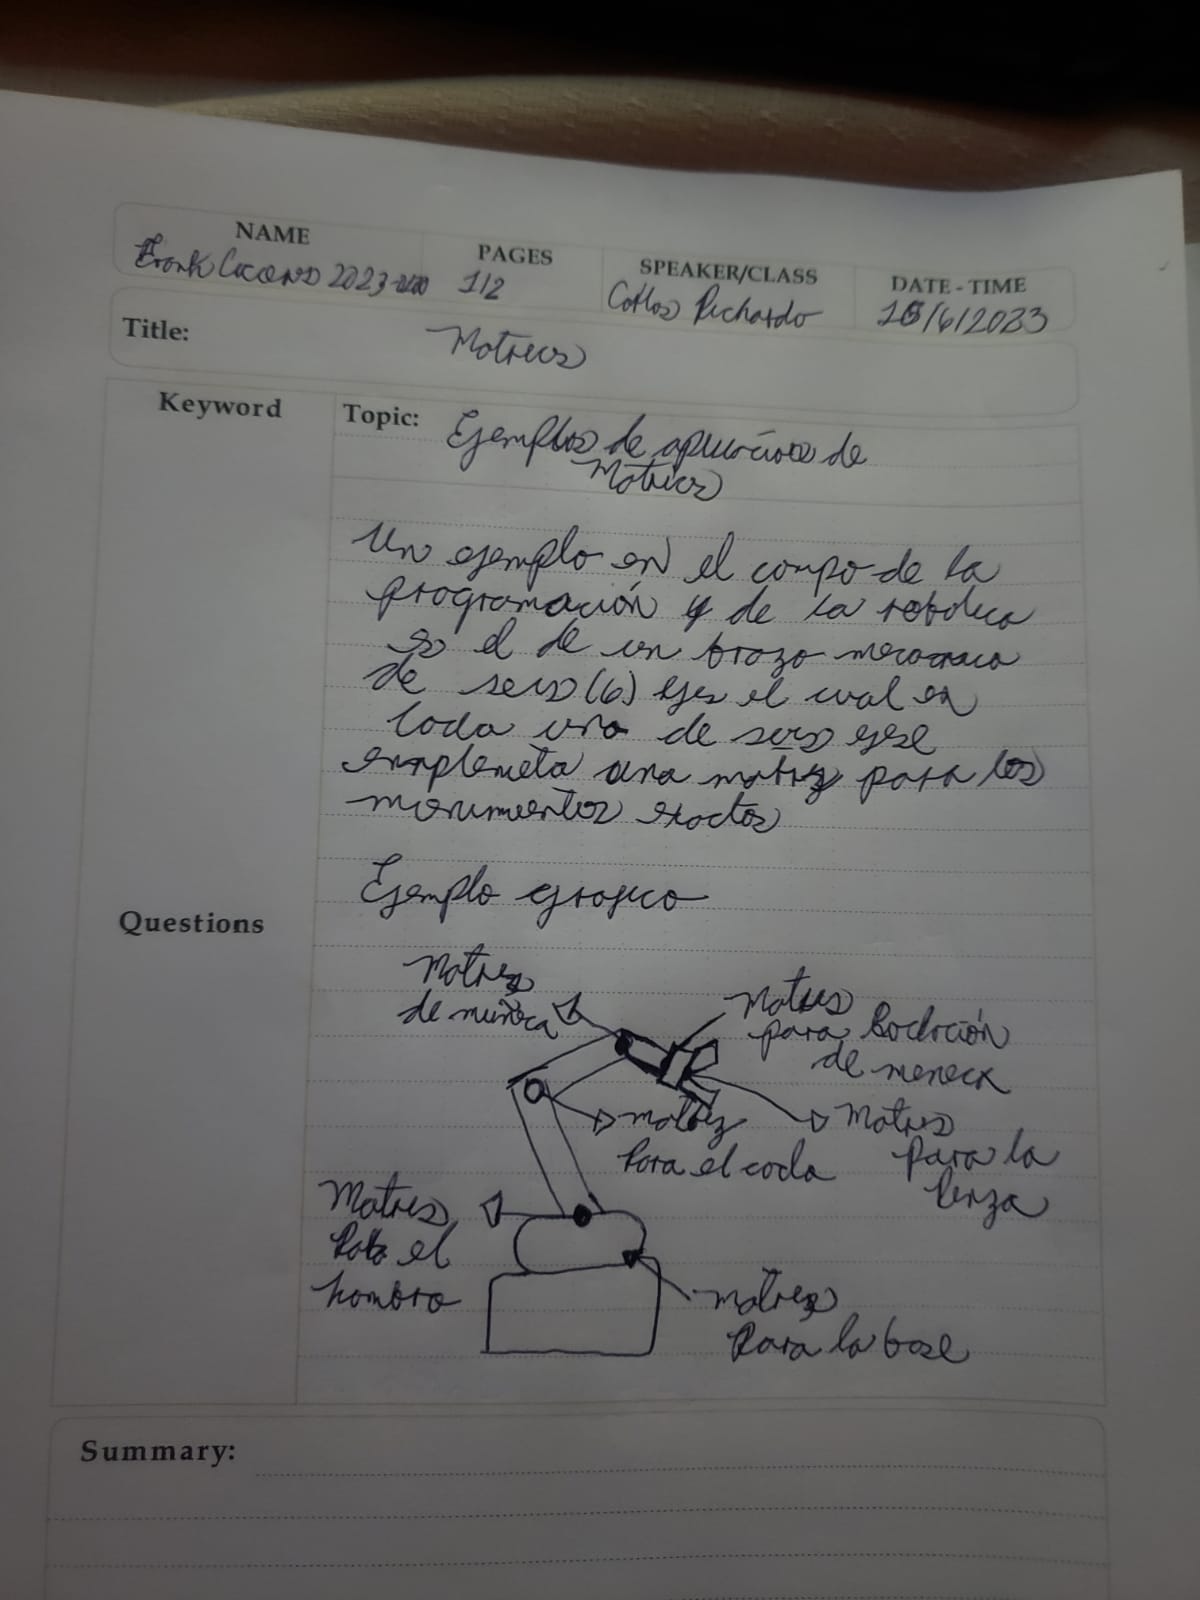 NAME
PAGES
SPEAKER/CLASS
DATE - TIME
Frank 2023
1/2
Carlos Pichardo
15/6/2023
Title:
Matrices
Keyword
Topic:
Ejemplos de aplicaciones de
Matrices
Un ejemplo en el campo de la
programación y de la robotica
es el de un brazo mecanico
de seis (6) ejes el cual en
cada uno de seis ejes
emplemeta una matriz para los
movimientos exactos
Ejemplo grafico
Questions
Matriz
de muñeca
Matriz
para Rodación
de meneca
matriz
para el codo
Matriz
para la
Pinza
Matriz
Para el
hombro
matriz
para la base
Summary: